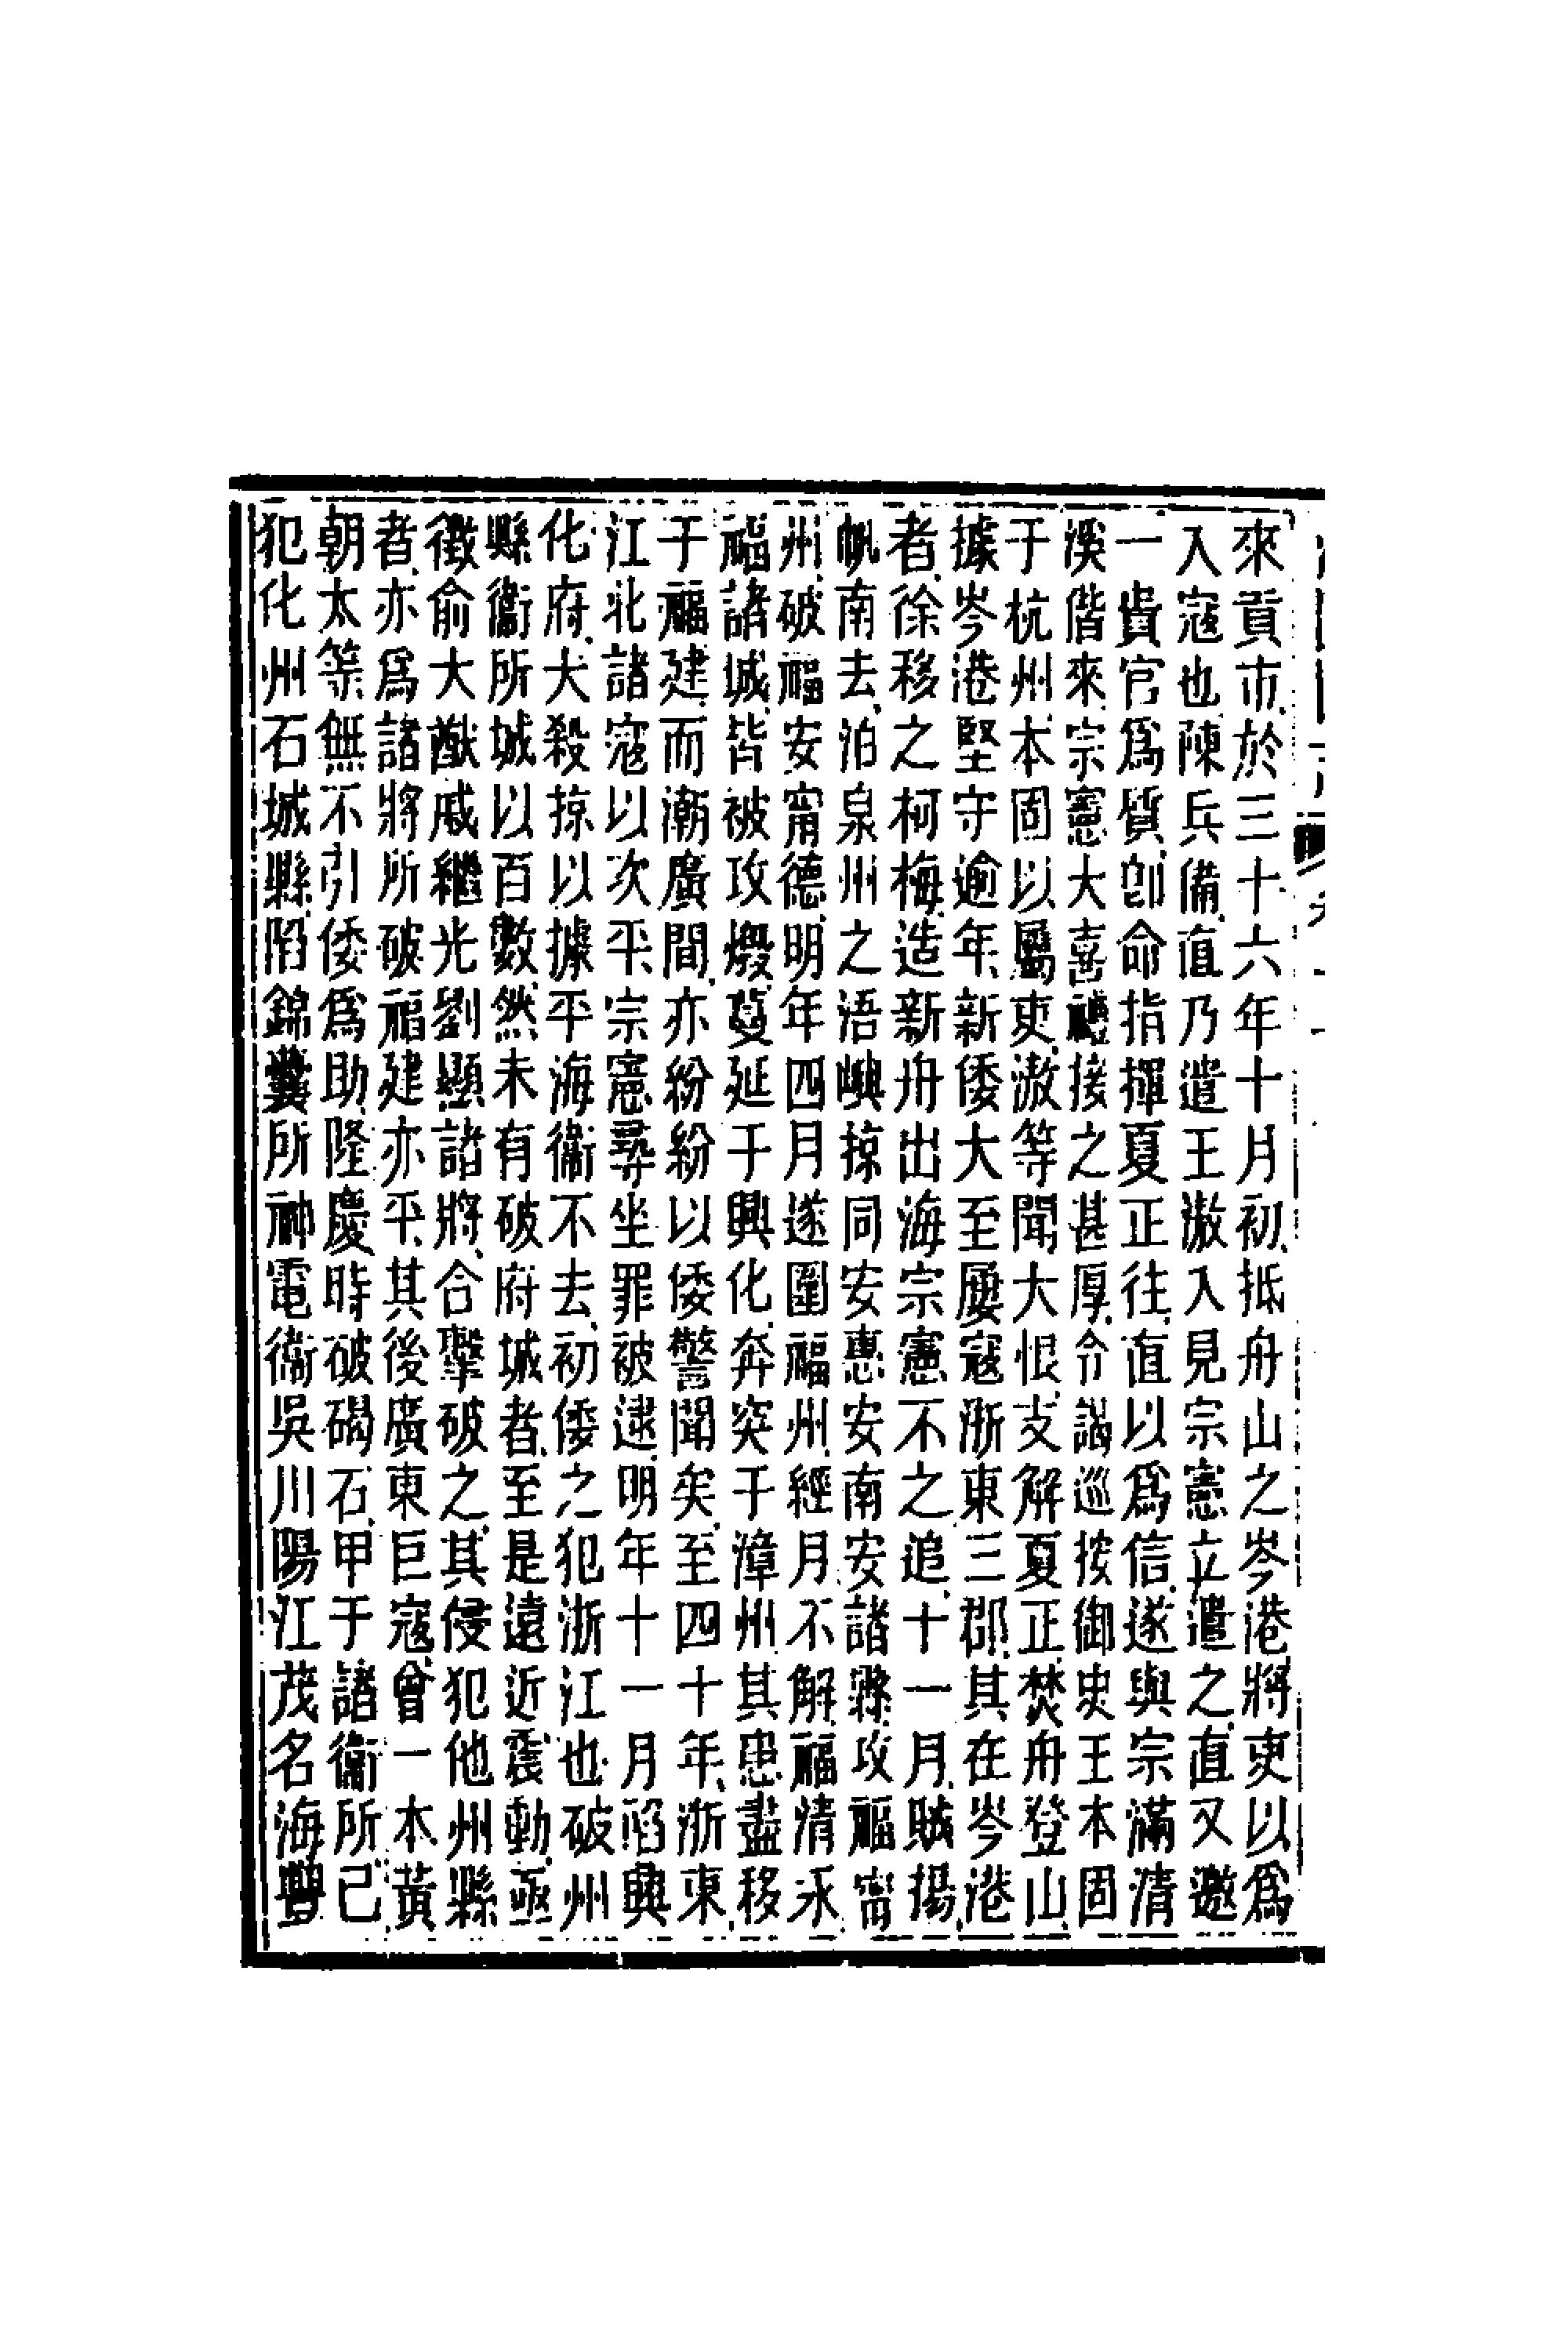 來貢市於三十六年十月初抵舟山之岑港將吏以爲
入寇也陳兵備直乃遣王滶入見宗憲立遣之直又邀
一貴官爲質卽命指揮夏正往直以爲信遂與宗滿清
溪偕來宗憲大喜禮接之甚厚令謁巡按御史王本固
于杭州本固以屬吏滶等聞大恨支解夏正焚舟登山
據岑港堅守逾年新倭大至屢寇浙東三郡其在岑港
者徐移之柯梅造新舟出海宗憲不之追十一月賊揚
帆南去泊泉州之浯嶼掠同安惠安南安諸縣攻福甯
州破福安甯德明年四月遂圍福州經月不解福清永
福諸城皆被攻燬蔓延于興化奔突于漳州其患盡移
于福建而潮廣間亦紛紛以倭警聞矣至四十年浙東
江北諸寇以次平宗憲尋坐罪被逮明年十一月陷興
化府大殺掠以據平海衞不去初倭之犯浙江也破州
縣衞所城以百數然未有破府城者至是遠近震動亟
徵俞大猷戚繼光劉顯諸將合擊破之其侵犯他州縣
者亦爲諸將所破福建亦平其後廣東巨寇曾一本黃
朝太等無不引倭爲助隆慶時破碣石甲子諸衞所已
犯化州石城縣陷錦囊所神電衞吳川陽江茂名海豐